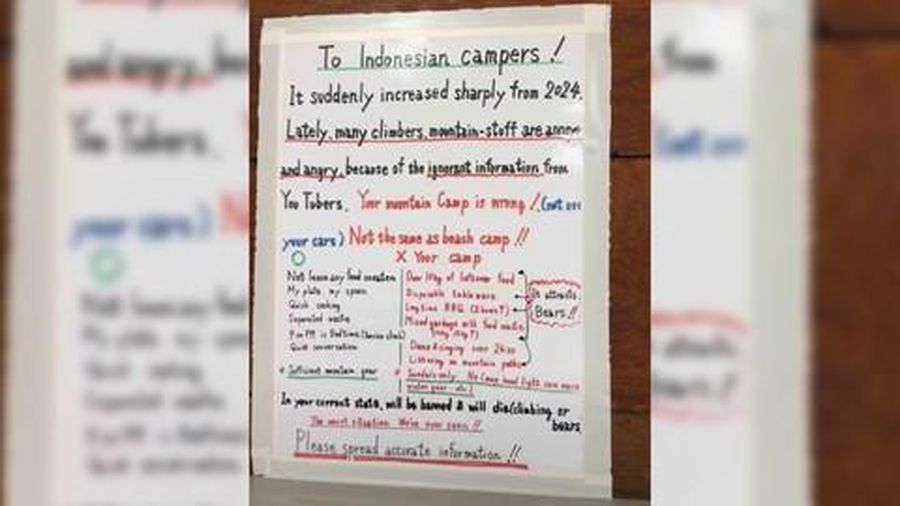 To Indonesian campers!
It suddenly increased sharply from 2024.
Lately, many climbers, mountain-stuff are
and angry, because of the ignorant information from
You Tubers. Your mountain Camp is wrong! (not on
your cars) Not the same as beach camp!!
○ × Your camp
Not leave any food
My plate, my spoon
Quick cooking
Separated waste
Quiet conversation
Sufficient mountain gear
Over 10kg of leftover food
Disposable tableware
Long time BBQ
Mixed garbage with food waste
Dance & singing over
Littering on mountain paths
Sandals only. No (map head light rain wear
It attracts
Bears!!
In your current state, will be banned & will die(climbing or
bears
The worst situation We've ever seen!!
Please spread accurate information!!